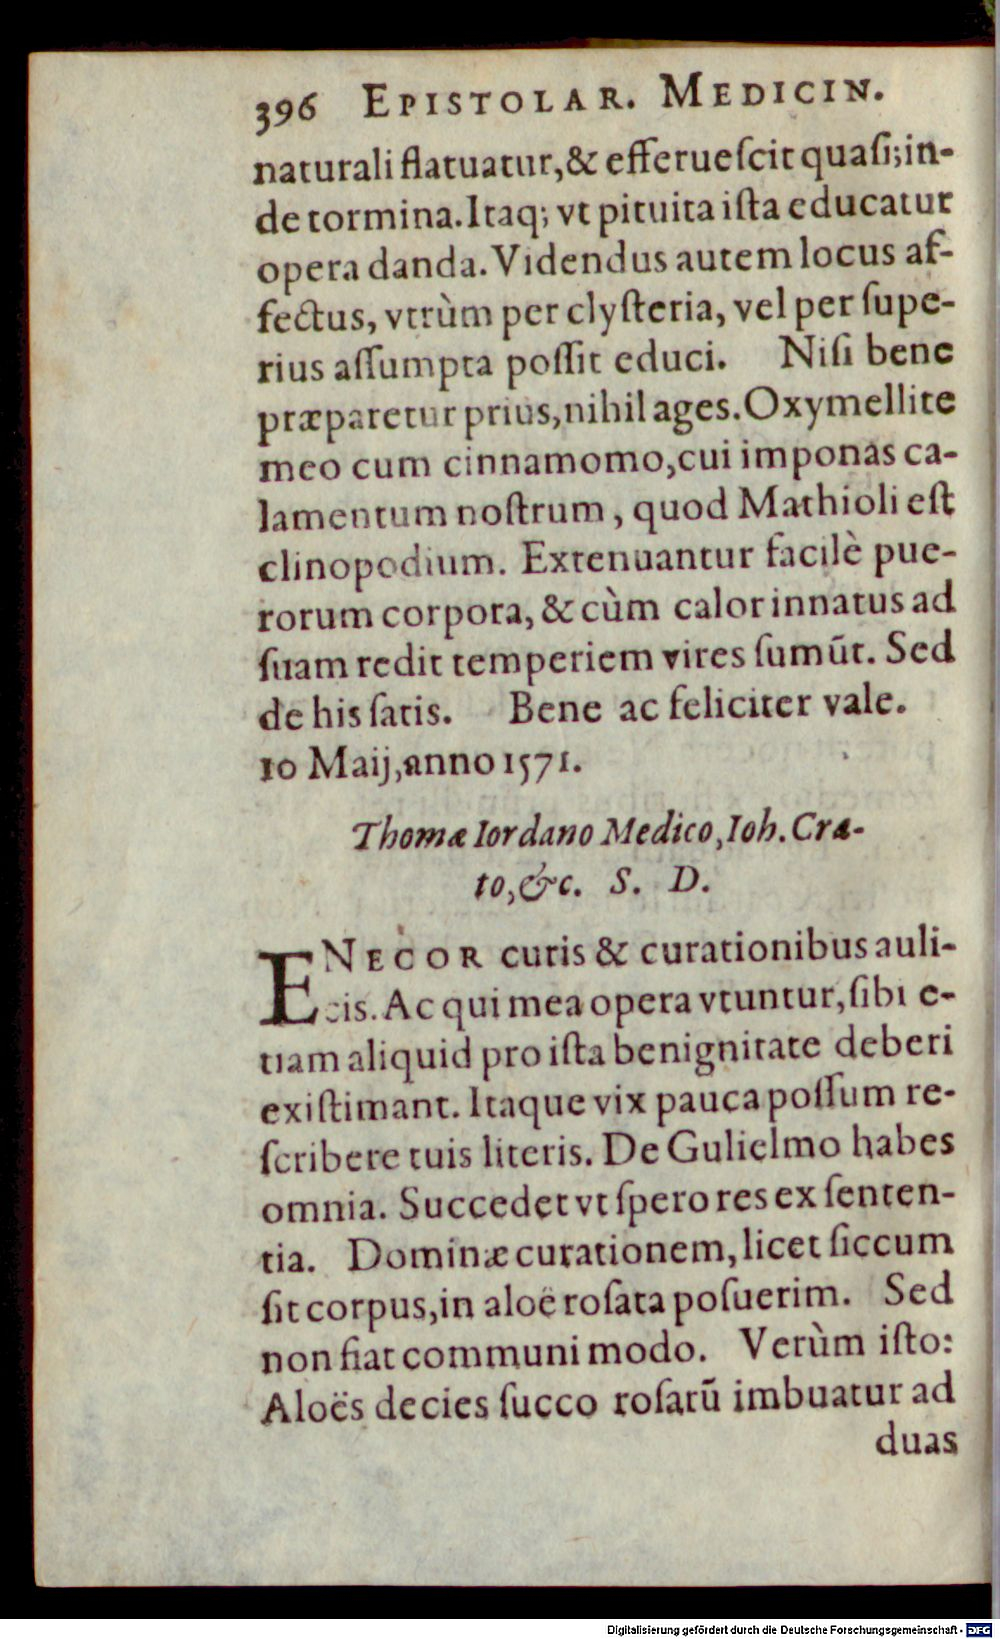 396 EPISTOLAR. MEDICIN.
naturali flatuatur,& efferueſcit quaſi;in-
de tormina.Itaq; vt pituita iſta educatur
opera danda. Videndus autem locus af-
fectus, vtrùm per clyſteria, vel per ſupe-
rius aſſumpta poſſit educi. Niſi bene
præparetur prius,nihil ages.Oxymellite
meo cum cinnamomo,cui imponas ca-
lamentum noſtrum, quod Mathioli eſt
clinopodium. Extenuantur facilè pue-
rorum corpora, & cùm calor innatus ad
ſuam redit temperiem vires ſumũt. Sed
de his ſatis. Bene ac feliciter vale.
10 Maij,anno 1571.
Thomæ Iordano Medico,Ioh. Cra-
to,&c. S. D.
ENECOR curis & curationibus auli-
cis. Ac qui mea opera vtuntur, ſibi e-
tiam aliquid pro iſta benignitate deberi
exiſtimant. Itaque vix pauca poſſum re-
ſcribere tuis literis. De Gulielmo habes
omnia. Succedet vt ſpero res ex ſenten-
tia. Dominæ curationem, licet ſiccum
ſit corpus,in aloë roſata poſuerim. Sed
non fiat communi modo. Verùm iſto:
Aloës decies ſucco roſarũ imbuatur ad
duas
Digitalisierung gefördert durch die Deutsche Forschungsgemeinschaft - DFG